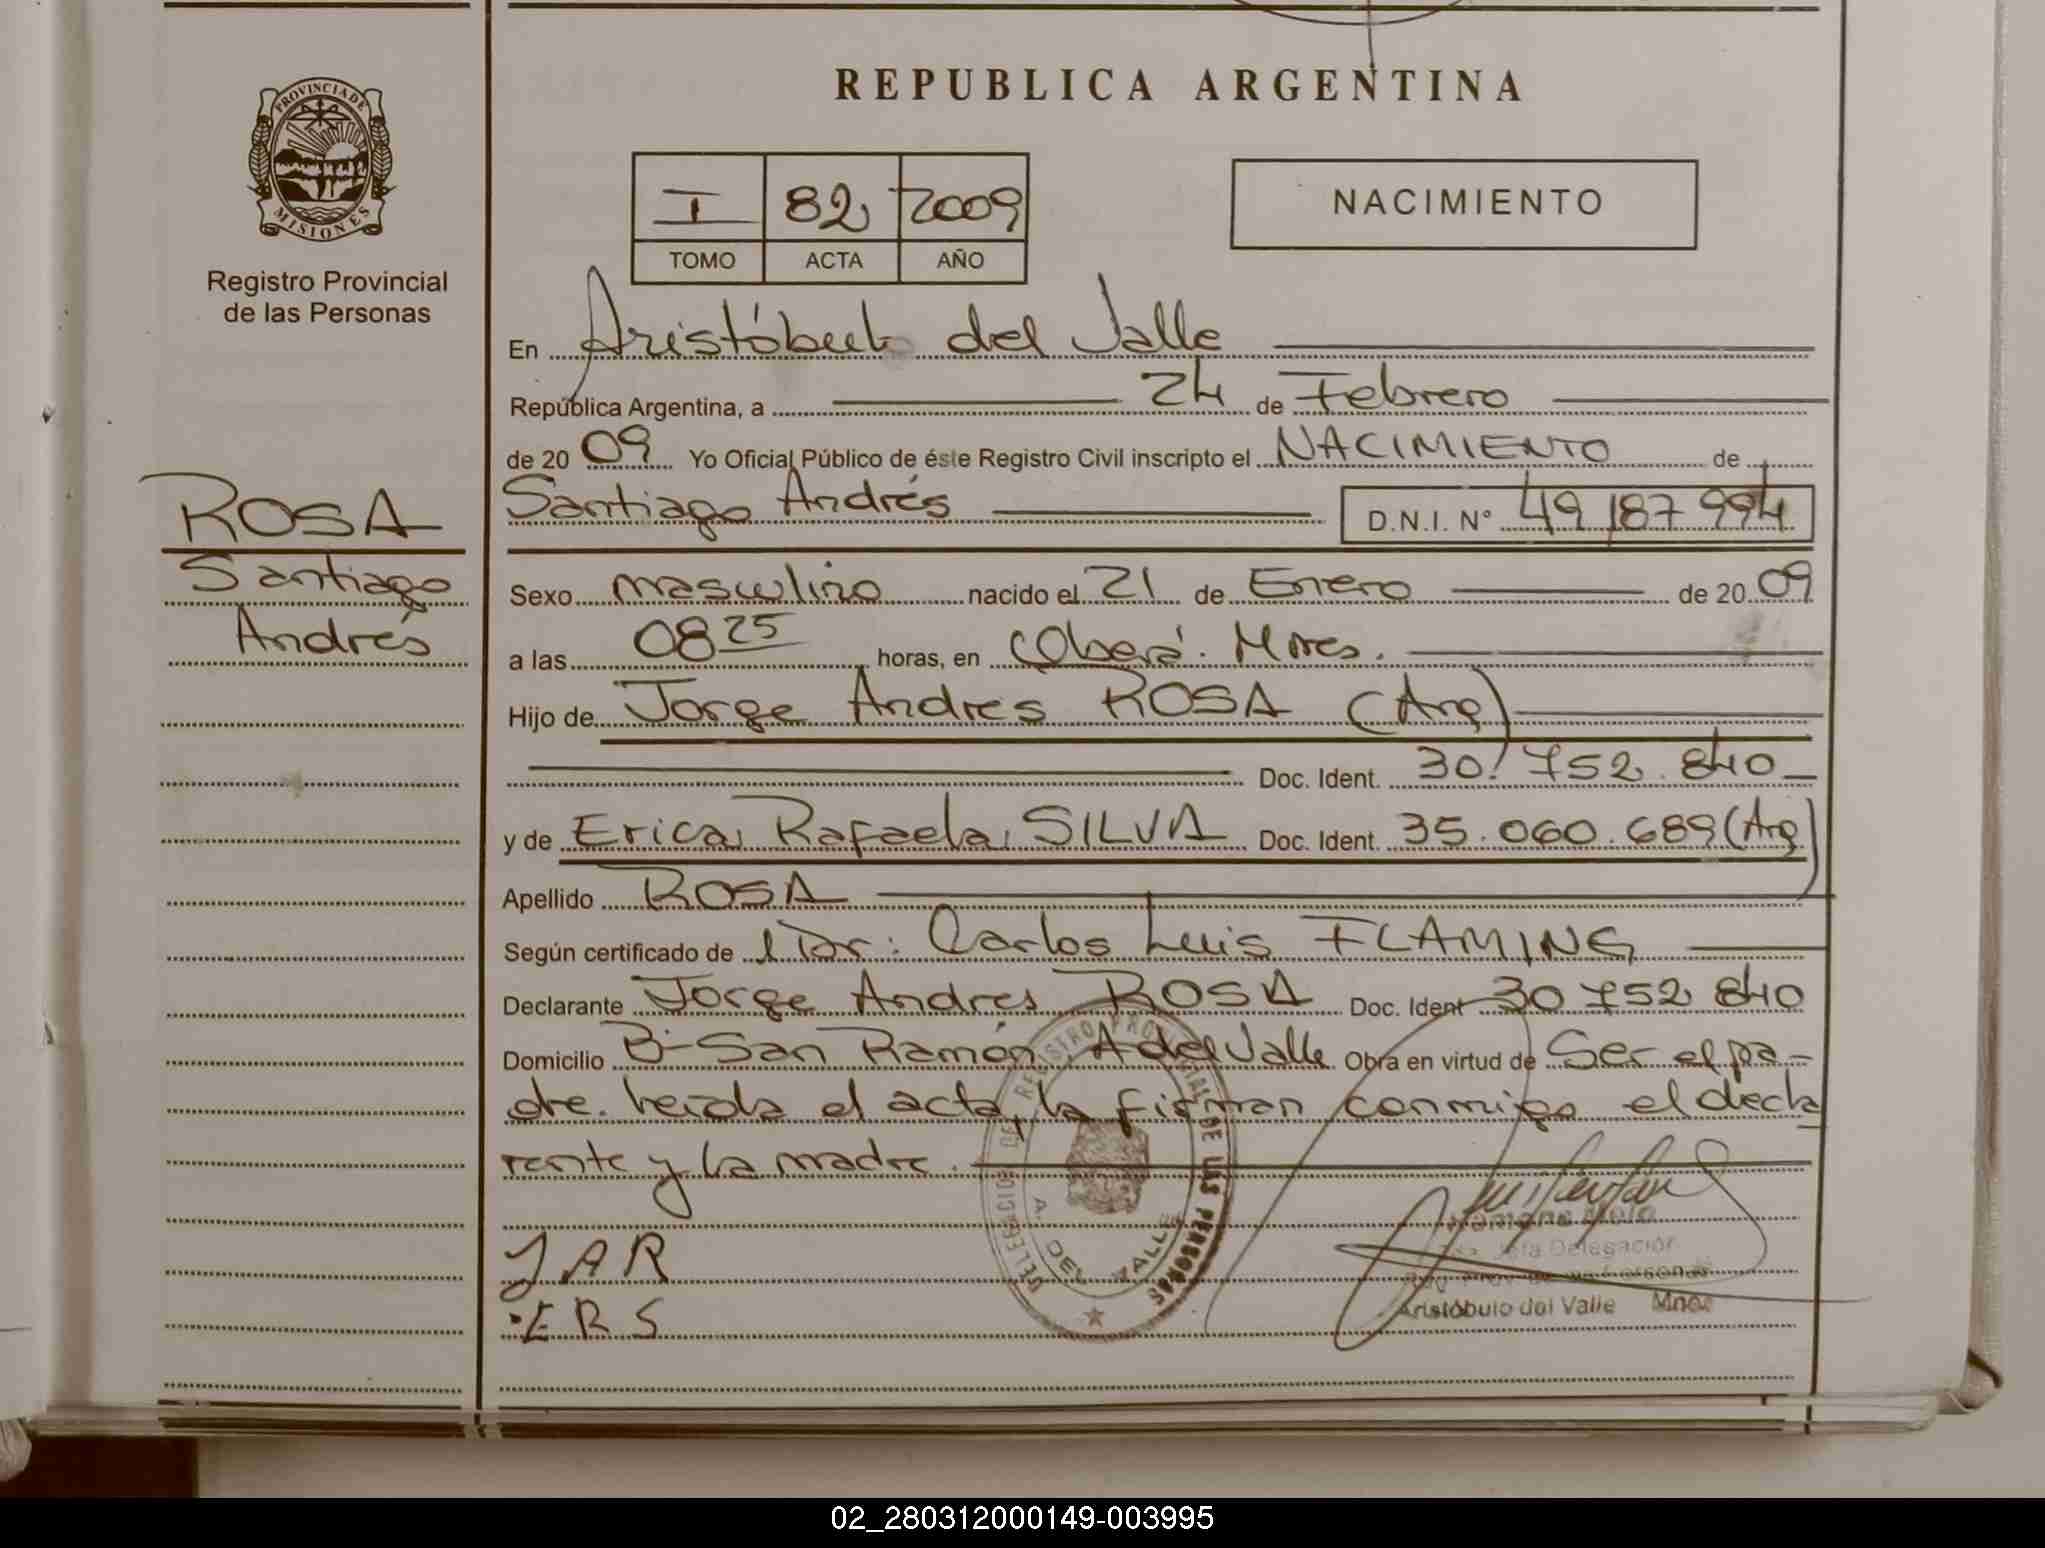 REPUBLICA ARGENTINA
PROVINCIA DE MISIONES
Registro Provincial
de las Personas
I 82 2009
TOMO ACTA AÑO
NACIMIENTO
En Aristóbulo del Valle
República Argentina, a 24 de Febrero
de 2009 Yo Oficial Público de éste Registro Civil inscripto el NACIMIENTO de
Santiago Andrés D.N.I. N° 49 187 994
ROSA
Santiago
Andrés
Sexo masculino nacido el 21 de Enero de 2009
a las 08 25 horas, en Oberá. Mnes.
Hijo de Jorge Andres ROSA (Arg)
Doc. Ident. 30.752.840
y de Erica Rafaela SILVA Doc. Ident. 35.060.689 (Arg)
Apellido ROSA
Según certificado de Dr: Carlos Luis FLAMING
Declarante Jorge Andres ROSA Doc. Ident 30 752 840
Domicilio Bº San Ramón A del Valle Obra en virtud de Ser el pa-
dre. leída el acta, la firman conmigo el decla
rante y la madre.
DELEGACION DEL REGISTRO PROVINCIAL DE LAS PERSONAS
A. DEL VALLE
JAR
ERS
Jefa Delegación
Reg. Prov. de las Personas
Aristóbulo del Valle Mnes
02_280312000149-003995